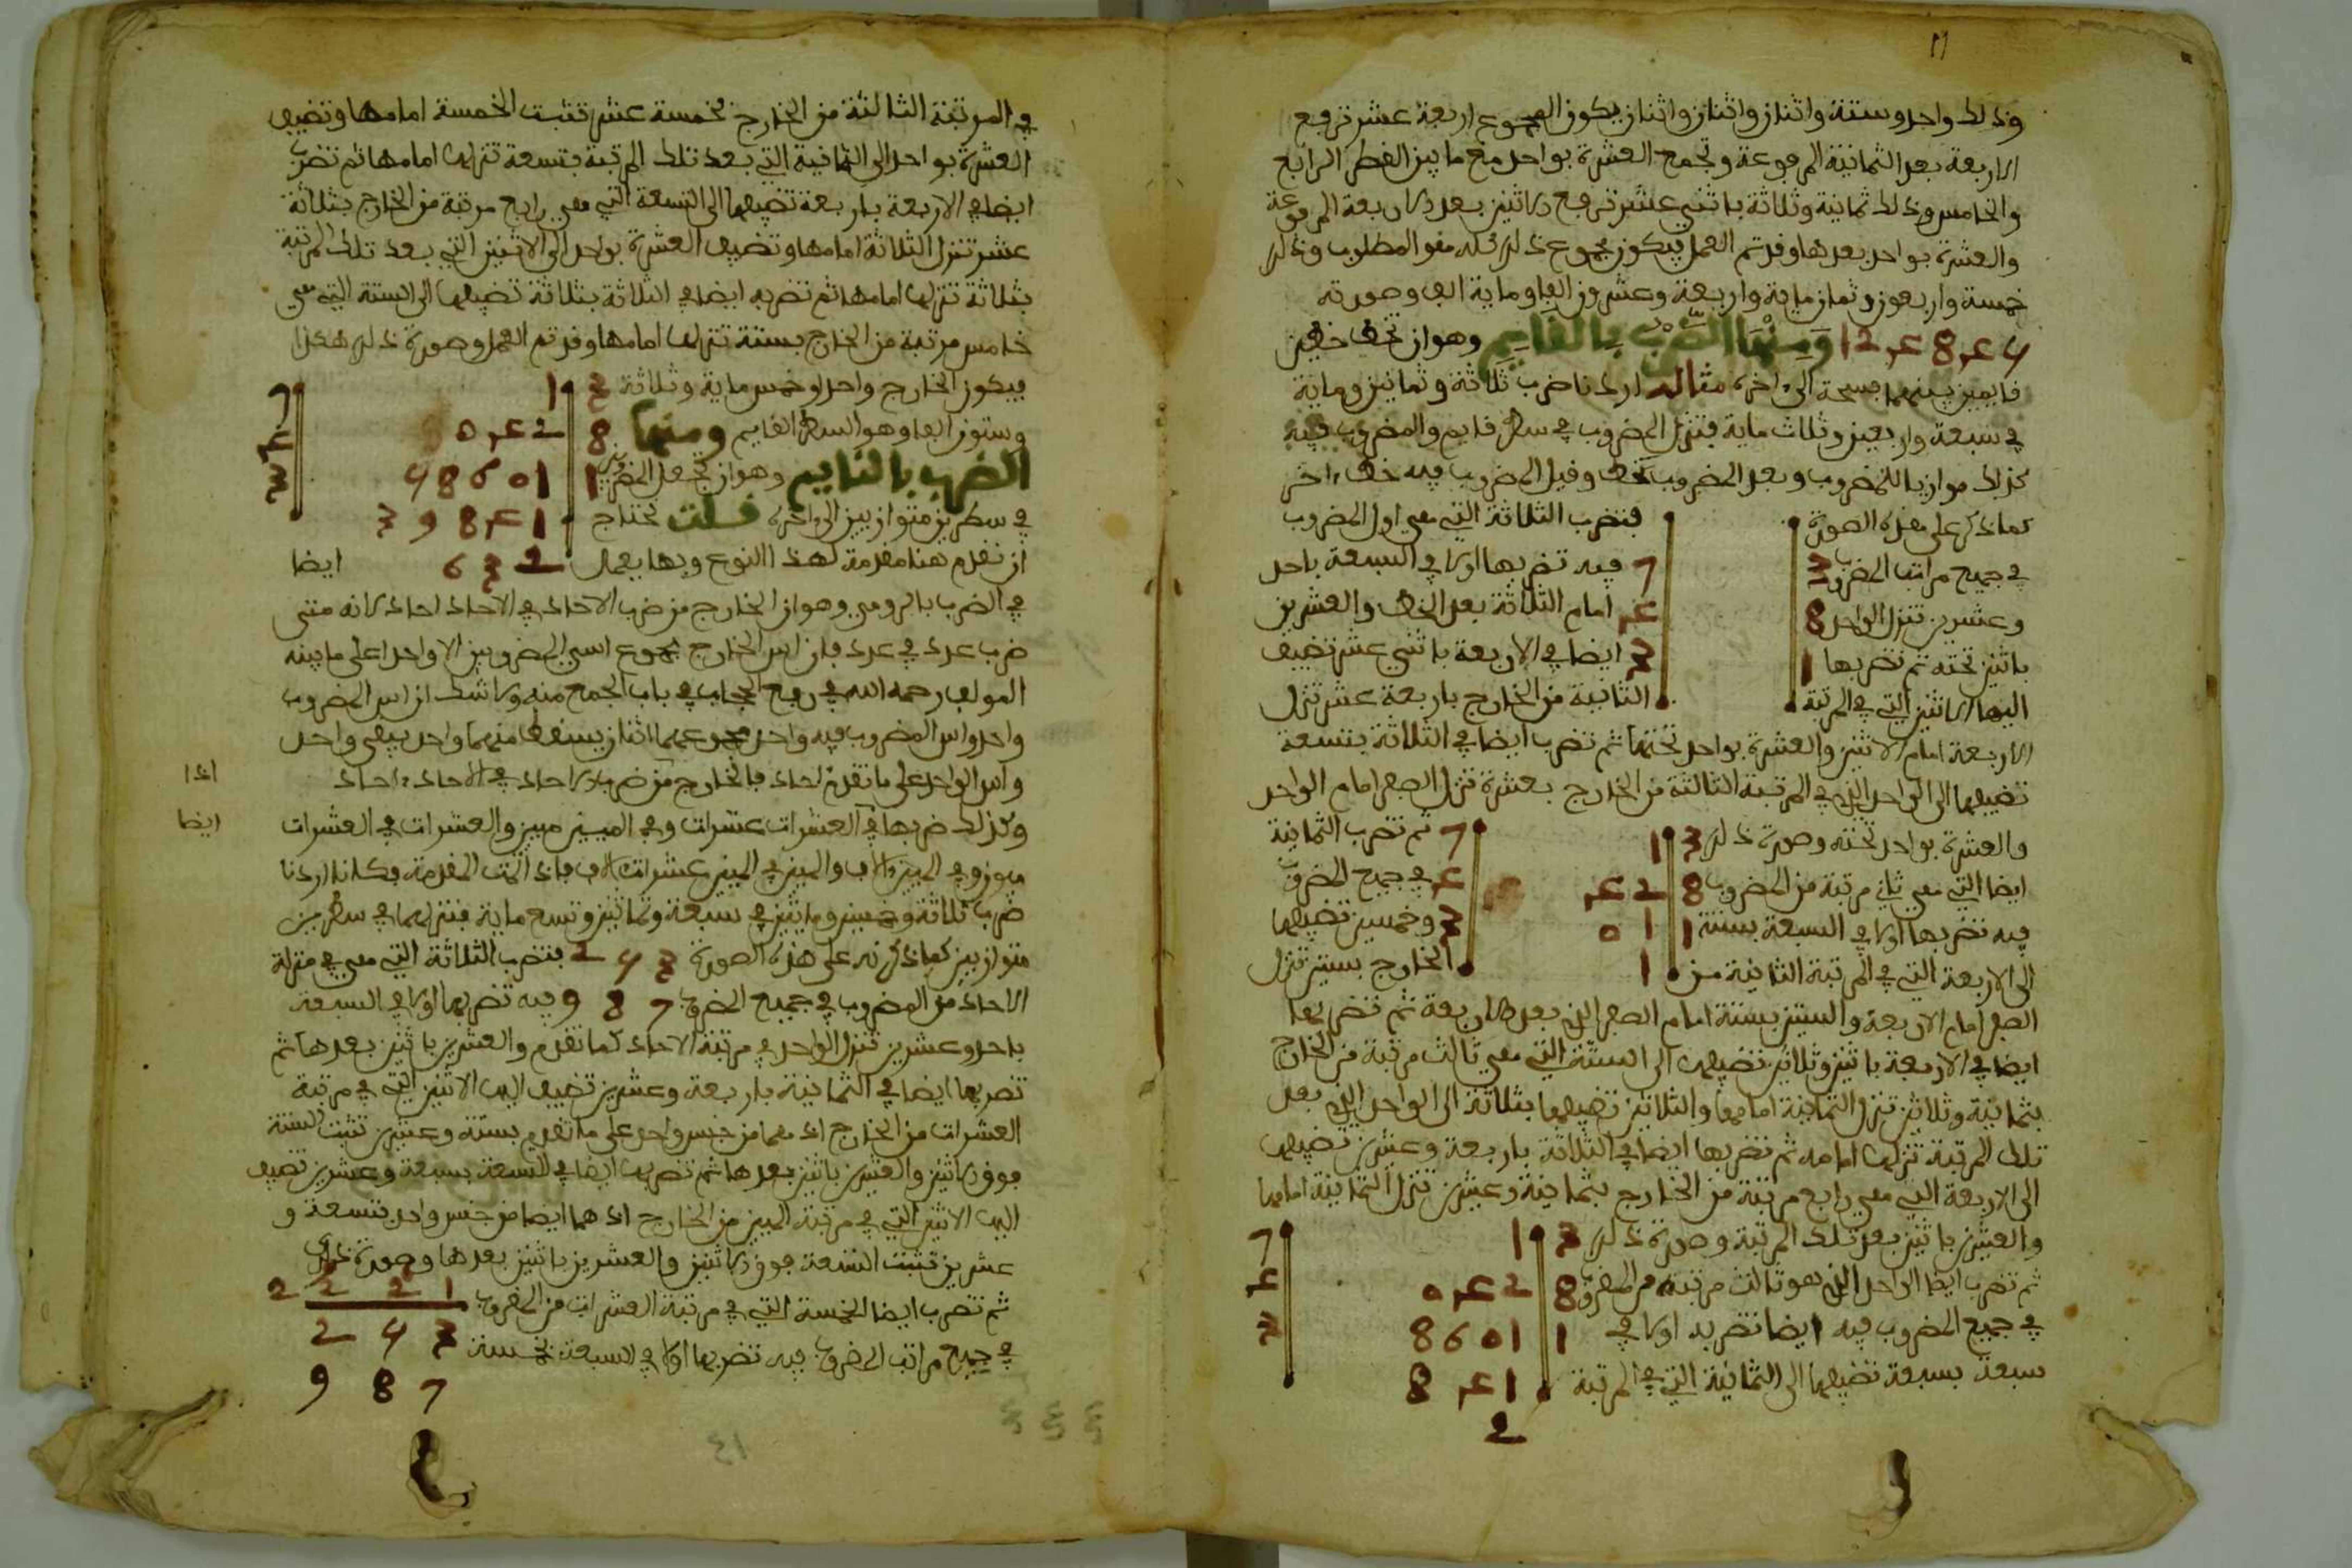 11
وذلك واحد وستة واثنان واثنان واثنان يكون المجموع اربعة عشر ترفع
الاربعة بعد الثمانية المرفوعة وتجمع العشرة بواحد مع ما بين القطر الرابع
والخامس وذلك ثمانية وثلاثة باثني عشر ترفع الاثنين بعد الاربعة المرفوعة
والعشرة بواحد بعدها وقد تم العمل فيكون مجموع ذلك كله هو المطلوب وذلك
خمسة واربعون وثمان ماية واربعة وعشرون الفا وماية الف وصورته
ومنها الضرب بالقايم وهو ان تخط خطين
قايمين بينهما فسحة الى اخره مثاله اردنا ضرب ثلاثة وثمانين وماية
في سبعة واربعين وثلاث ماية فتنزل المضروب في سطر قايم والمضروب فيه
كذلك موازيا للمضروب وبعد المضروب خط وقبل المضروب فيه خط اخر
كما ذكر على هذه الصورة فتضرب الثلاثة التي هي اول المضروب
في جميع مراتب المضروب 3 7 فيه تضربها اولا في السبعة باحد
وعشرين تنزل الواحد 8 4 امام الثلاثة بعد الخط والعشرين
باثنين تحته ثم تضربها 1 3 ايضا في الاربعة باثني عشر تضيف
اليها الاثنين التي في المرتبة الثانية من الخارج باربعة عشر تنزل
الاربعة امام الاثنين والعشرة بواحد تحتها ثم تضرب ايضا في الثلاثة بتسعة
تضيفها الى الواحد الذي في المرتبة الثالثة من الخارج بعشرة تنزل الصفر امام الواحد
والعشرة بواحد تحته وصورة ذلك 3 1 7 ثم تضرب الثمانية
ايضا التي هي ثاني مرتبة من المضروب 8 2 4 4 في جميع المضروب
فيه تضربها اولا في السبعة بستة 1 1 0 3 وخمسين تضيفها
الى الاربعة التي في المرتبة الثانية من 1 الخارج بستين تنزل
الصفر امام الاربعة والستين بستة امام الصفر الذي بعد الاربعة ثم تضربها
ايضا في الاربعة باثنين وثلاثين تضيفها الى الستة التي هي ثالث مرتبة من الخارج
بثمانية وثلاثين تنزل الثمانية امامها والثلاثين تضيفها بثلاثة الى الواحد الذي بعد
تلك المرتبة تنزلها امامه ثم تضربها ايضا في الثلاثة باربعة وعشرين تضيفها
الى الاربعة التي هي رابع مرتبة من الخارج بثمانية وعشرين تنزل الثمانية امامها
والعشرين باثنين بعد تلك المرتبة وصورة ذلك 3 1 7
ثم تضرب ايضا الواحد الذي هو ثالث مرتبة من المضروب 8 2 4 0 4
في جميع المضروب فيه ايضا تضربه اولا في 1 1 0 6 8 3
سبعة بسبعة تضيفها الى الثمانية التي في المرتبة 1 4 8
2
في المرتبة الثالثة من الخارج بخمسة عشر تثبت الخمسة امامها وتضيف
العشرة بواحد الى الثمانية التي بعد تلك المرتبة بتسعة تنزلها امامها ثم تضرب
ايضا في الاربعة باربعة تضيفها الى التسعة التي هي رابع مرتبة من الخارج بثلاثة
عشر تنزل الثلاثة امامها وتضيف العشرة بواحد الى الاثنين التي بعد تلك المرتبة
بثلاثة تنزلها امامها ثم تضربه ايضا في الثلاثة بثلاثة تضيفها الى الستة التي هي
خامس مرتبة من الخارج بستة تنزلها امامها وقد تم العمل وصورة ذلك هكذا
فيكون الخارج واحدا وخمس ماية وثلاثة 3 1 7
وستون الفا وهو السطر القايم ومنها 8 2 4 0 4
الضرب بالنايم وهو ان تجعل المضروبين 1 1 0 6 8 4 3
في سطرين متوازيين الى اخره قلت تحتاج 1 4 8 9 3
ان نقدم هنا مقدمة لهذا النوع وبها يعمل 2 3 6 ايضا
في الضرب بالرومي وهو ان الخارج من ضرب الاحاد في الاحاد احاد لانه متى
ضرب عدد في عدد فان اس الخارج مجموع اسي المضروبين الا واحدا على ما بينه
المولف رحمه الله في رفع الحجاب في باب الجمع منه ولا شك ان اس المضروب
واحد واس المضروب فيه واحد مجموعهما اثنان يسقط منهما واحد يبقى واحد
واس الواحد على ما تقدم احاد فالخارج من ضرب الاحاد في الاحاد احاد اذا
وكذلك ضربها في العشرات عشرات وفي الميين ميين والعشرات في العشرات ايضا
ميون وفي الميين الاف والميين في الميين عشرات الاف فاذا اثبت المقدمة فكانا اردنا
ضرب ثلاثة وخمسين وماتين في سبعة وثمانين وتسع ماية فتنزلهما في سطرين
متوازيين كما ذكرته على هذه الصورة 3 4 2 فتضرب الثلاثة التي هي في منزلة
الاحاد من المضروب في جميع المضروب 7 8 9 فيه تضربها اولا في السبعة
باحد وعشرين تنزل الواحد في مرتبة الاحاد كما تقدم والعشرين باثنين بعدها ثم
تضربها ايضا في الثمانية باربعة وعشرين تضيف اليها الاثنين التي في مرتبة
العشرات من الخارج اذ هما من جنس واحد على ما تقدم بستة وعشرين تثبت الستة
فوق الاثنين والعشرين باثنين بعدها ثم تضربها ايضا في التسعة بسبعة وعشرين تضيف
اليها الاثنين التي في مرتبة الميين من الخارج اذ هما ايضا من جنس واحد بتسعة و
عشرين تثبت التسعة فوق الاثنين والعشرين باثنين بعدها وصورة ذلك
ثم تضرب ايضا الخمسة التي في مرتبة العشرات من المضروب 1 2 2 2
في جميع مراتب المضروب فيه تضربها اولا في السبعة بخمسة 3 4 2
7 8 9